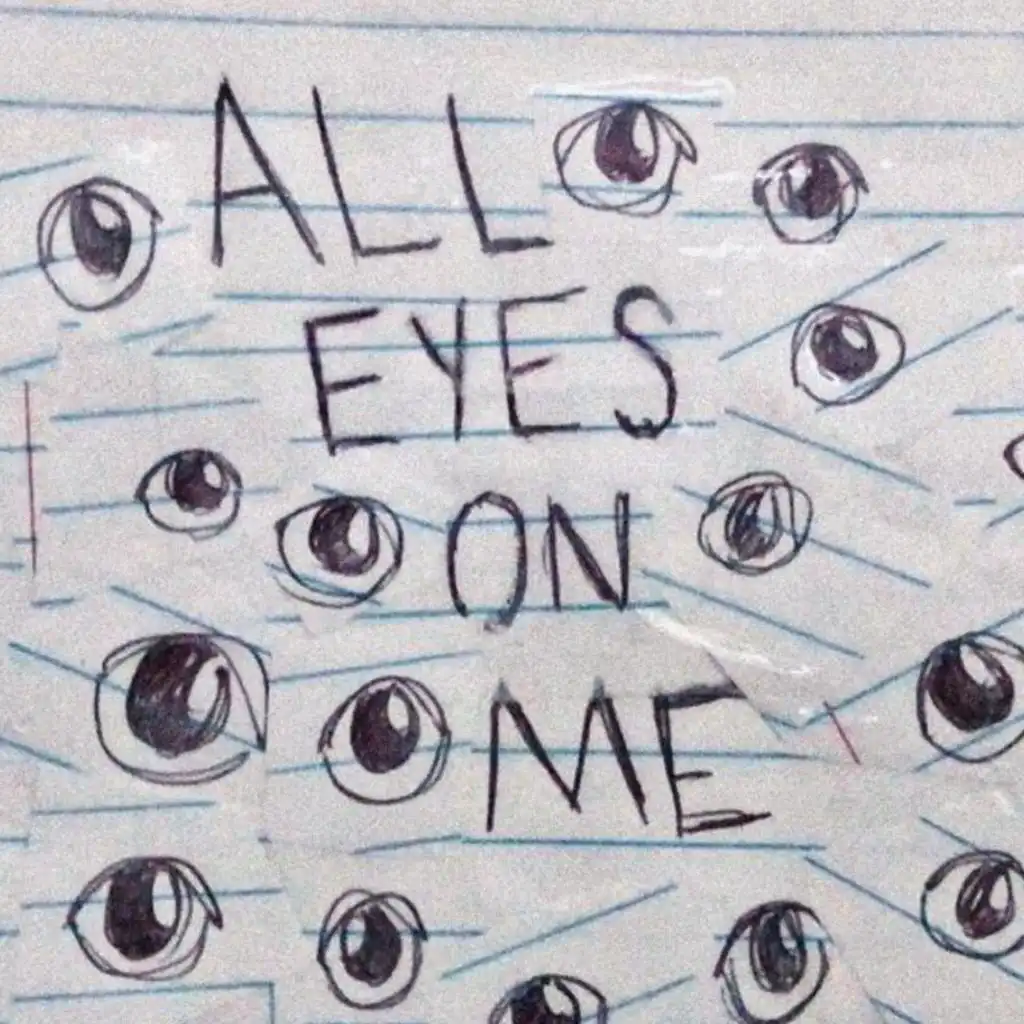 ALL
EYES
ON
ME